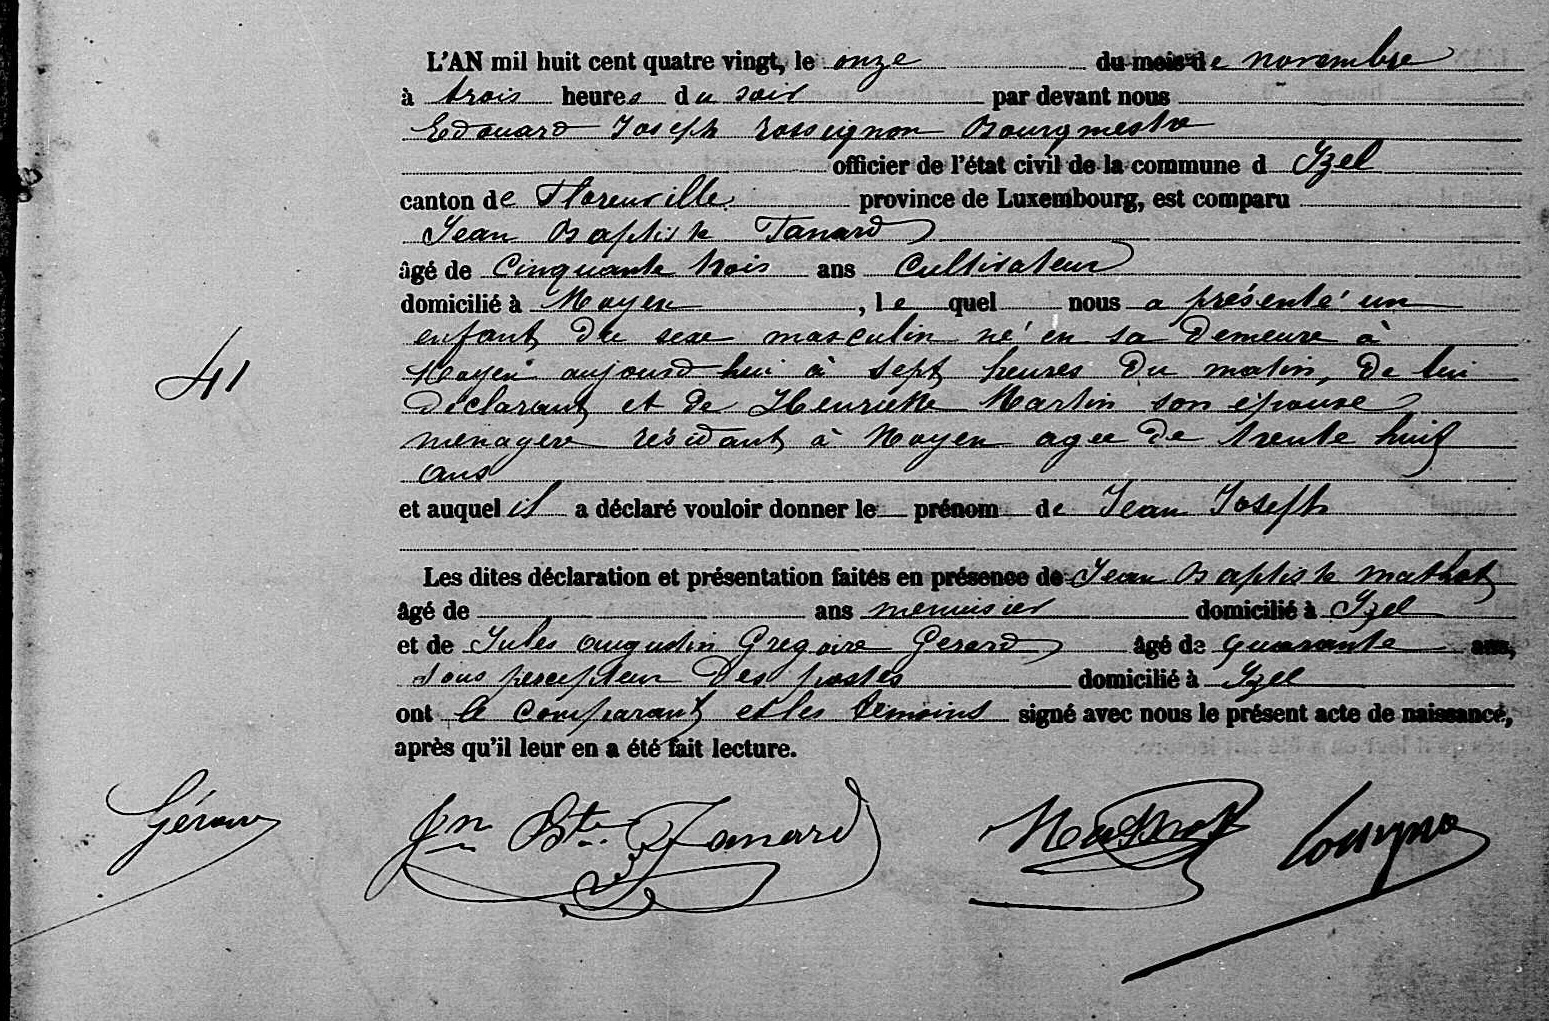 L'AN mil huit cent quatre vingt, le onze du mois de novembre
à trois heures du soir par devant nous
Edouard Joseph Rossignon Bourgmestre
officier de l'état civil de la commune d Izel
canton de Florenville province de Luxembourg, est comparu
Jean Baptiste Fanard
âgé de Cinquante trois ans Cultivateur
domicilié à Moyen, le quel nous a présenté un
enfant du sexe masculin né en sa demeure à
Moyen aujourd hui à sept heures du matin, de lui
41
déclarant et de Henriette Martin son épouse
ménagère résidant à Moyen agee de trente huit
ans
et auquel il a déclaré vouloir donner le prénom de Jean Joseph
Les dites déclaration et présentation faites en présence de Jean Baptiste Mathot
âgé de ans menuisier domicilié à Izel
et de Jules Augustin Gregoire Gerard âgé de quarante ans,
sous percepteur des postes domicilié à Izel
ont le comparant et les témoins signé avec nous le présent acte de naissance,
après qu'il leur en a été fait lecture.
Gérard Jn Bte Fanard Mathot